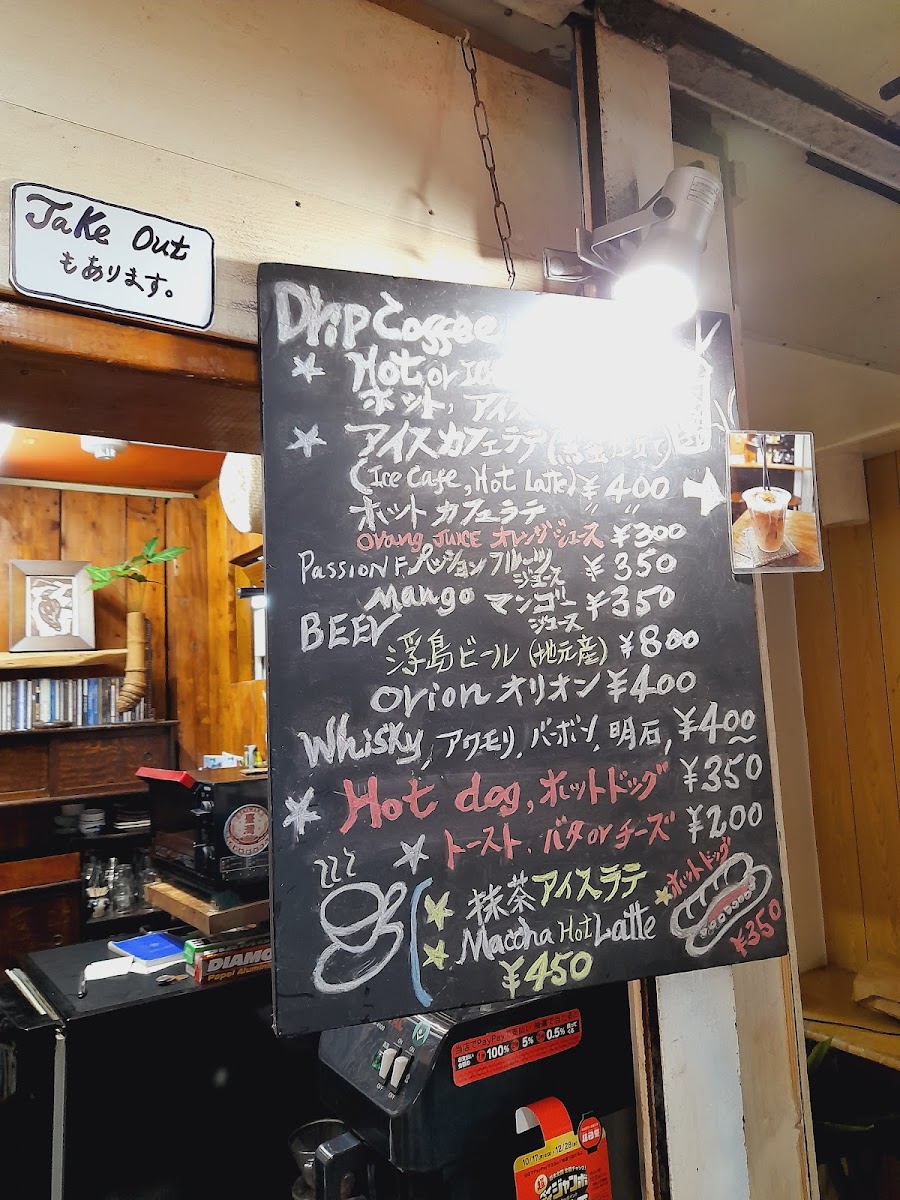 Take Out
もあります。
Drip Coffee
Hot or Ice
ホット, アイス
アイスカフェラテ
(Ice Cafe, Hot Latte) ¥400
ホットカフェラテ 〃 〃
Orang JUICE オレンジジュース ¥300
PASSION F. パッションフルーツ
ジュース ¥350
Mango マンゴー
ジュース ¥350
BEER
浮島ビール (地元産) ¥800
Orion オリオン ¥400
Whisky, アワモリ, バーボン, 明石, ¥400
Hot dog, ホットドッグ ¥350
トースト, バタ or チーズ ¥200
抹茶アイスラテ
Maccha Hot Latte
¥450
ホットドッグ
¥350
DIAMOND
当店でPayPayで
100% 5% 0.5%
10/17 12/28
ジャンボ